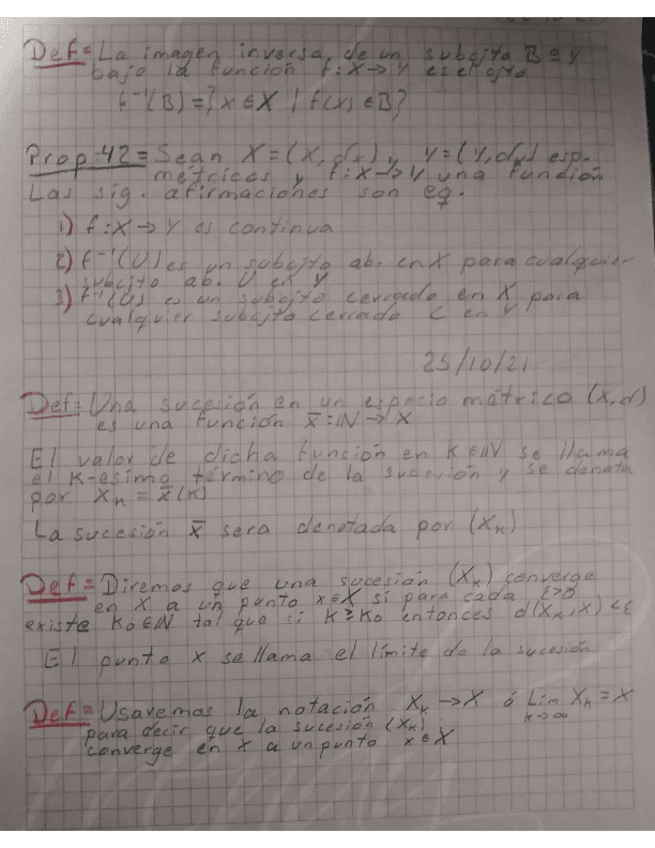 Def= La imagen inversa de un subcjto B ⊆ Y
bajo la función f: X → Y es el cjto
f⁻¹(B) = { x ∈ X | f(x) ∈ B }
Prop 42= Sean X = (X, dx) y Y = (Y, dy) esp.
métricos y f: X → Y una función
Las sig. afirmaciones son eq.
1) f: X → Y es continua
2) f⁻¹(U) es un subcjto ab. en X para cualquier
subcjto ab. U en Y
3) f⁻¹(U) es un subcjto cerrado en X para
cualquier subcjto cerrado C en Y
25/10/21
Def= Una sucesión en un espacio métrico (X, d)
es una función x̄: ℕ → X
El valor de dicha función en K ∈ ℕ se llama
el K-esimo término de la sucesión y se denota
por Xₖ = x̄(K)
La sucesión x̄ sera denotada por (Xₖ)
Def= Diremos que una sucesión (Xₖ) converge
en X a un punto x ∈ X si para cada ε>0
existe K₀ ∈ ℕ tal que si K ≥ K₀ entonces d(Xₖ, X) < ε
El punto x se llama el límite de la sucesión
Def= Usaremos la notación Xₖ → X ó Lim Xₖ = X
K→∞
para decir que la sucesión (Xₖ)
converge en X a un punto x ∈ X